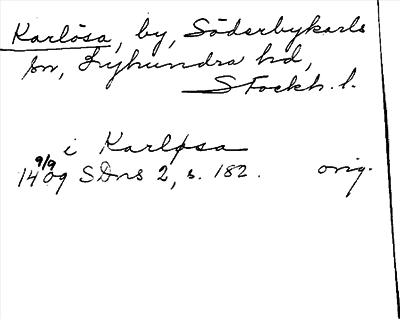 Karlösa, by, Söderbykarls
sn, Lyhundra hd,
Stockh. l.
i Karløsa
1409 9/9 SDns 2, s. 182. orig.